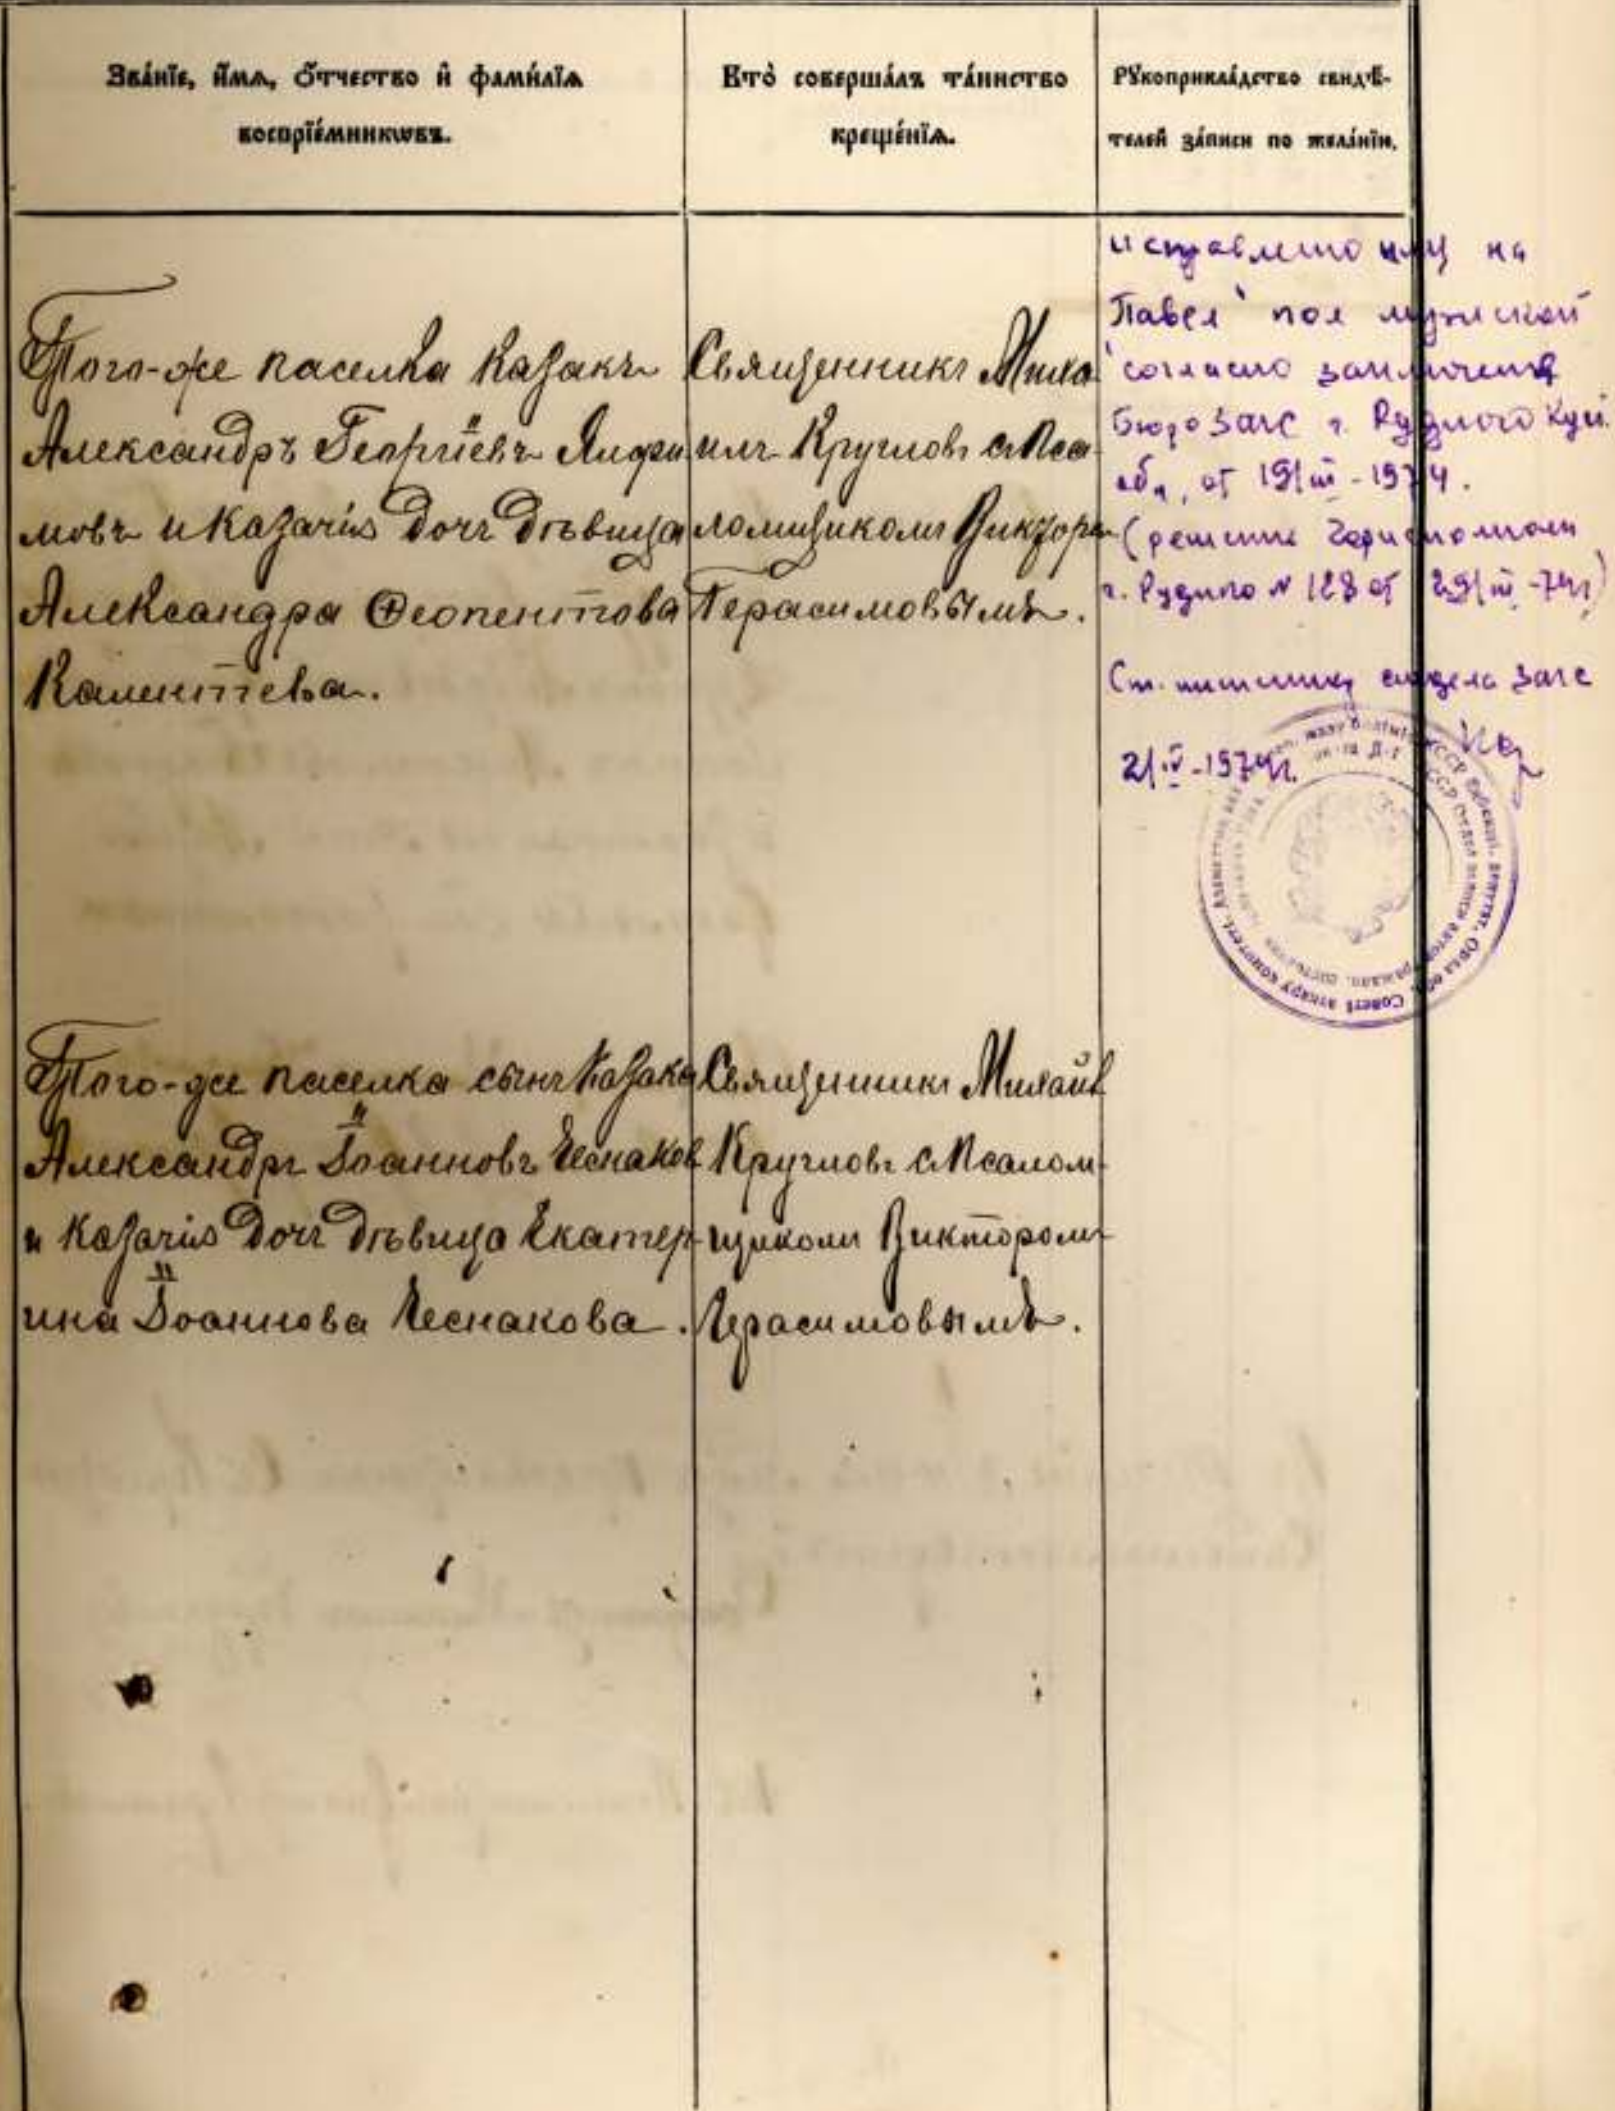 Зва́нїе, и́мѧ, ѻ҆́тчество и҆ фамѝлїѧ
воспрїе́мникѡвъ.
Кто̀ соверша́лъ та́инство
креще́нїѧ.
Рꙋкоприкла́дство свидѣ-
телей за́писи по жела́нїю.
Того-же паселка казакъ
Александръ Георгіевъ Анфи
мовъ и казачія дочь дѣвица
Александра Ѳеопентова
Калентьева.
Священникъ Миха
илъ Кругловъ с Пса
ломщикомъ Викторо
Герасимовымъ.
исправлено имя на
Павел пол мужской
согласно заключения
Бюро Загс г. Рудного Куст.
обл, от 19/III-1974.
(решение Горисполкома
г. Рудного № 128 от 29/III-74г)
Ст. отдела Загс
2/IV-1974г.
Того-же паселка сынъ казака
Александръ Іоанновъ Чеснаков
и казачія дочь дѣвица Екатер-
ина Іоаннова Чеснакова.
Священникъ Михаил
Кругловъ с Псалом-
щикомъ Викторомъ
Герасимовымъ.